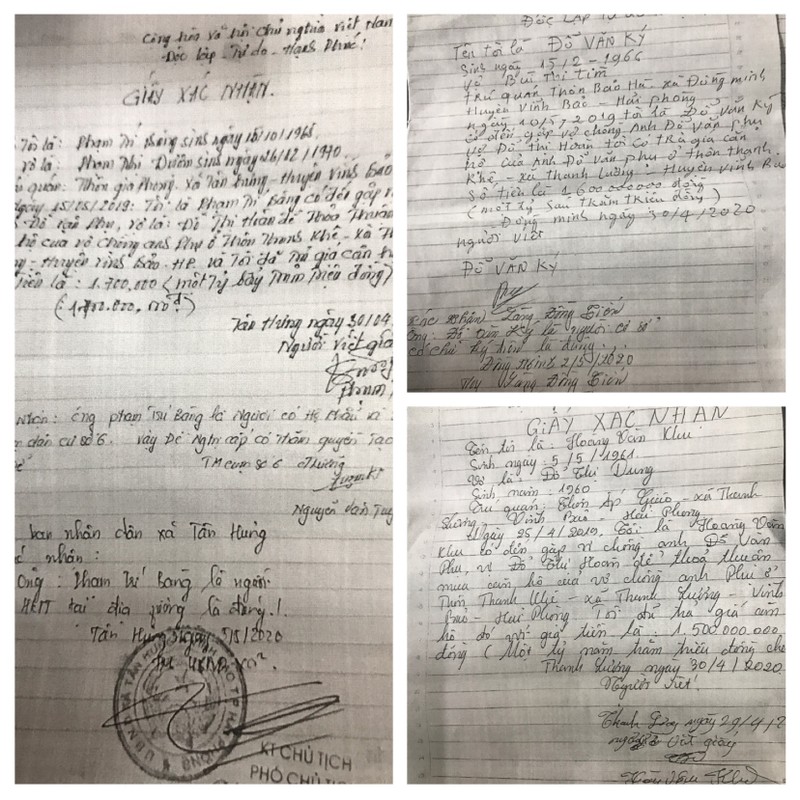 Cộng hòa xã hội Chủ nghĩa Việt Nam
Độc lập - Tự do - Hạnh Phúc!
GIẤY XÁC NHẬN.
Tôi là: Phạm Trí Bằng sinh ngày 10/1965.
Vợ là: Phạm Nhi Điềm sinh ngày 26/12/1970.
quán: Thôn gia Phong. Xã Tân hưng - Huyện Vĩnh Bảo
ngày 15/05/2019: Tôi là Phạm Trí Bằng có đến gặp
Đỗ văn Phụ, Vợ là: Đỗ Thị Hoan để Thỏa Thuận
hộ của vợ chồng anh Phụ ở Thôn Thanh Khê - Xã
- Huyện Vĩnh Bảo - HP. và Tôi đã trả giá căn
tiền là: 1.700.000 (một Tỷ bảy trăm Triệu đồng)
Tân Hưng ngày 30/04
Người viết giấy
nhận: ông phạm Trí Bằng là Người có Hộ khẩu
dân cư số 6. vậy Đề Nghị cấp có Thẩm quyền Tạo
TM cụm số 6
Nguyễn Văn
ban nhân dân xã Tân Hưng
nhận:
Ông: Phạm Trí Bằng là người
tại địa phương là đúng.!
Tân Hưng ngày 5/5/2020
TM UBND xã
KT CHỦ TỊCH
PHÓ CHỦ
Độc Lập Tự do
Tên tôi là ĐỖ VĂN KÝ
Sinh ngày 15/2-1966
Vợ Bùi Thị Tím
Trú quán Thôn Bảo Hà - xã Đồng minh
Huyện Vĩnh Bảo - Hải phòng
ngày 10/5/2019 tôi là Đỗ Văn Ký
có đến gặp vợ chồng Anh Đỗ Văn phụ
vợ Đỗ Thị Hoan tôi có trả giá căn
hộ của Anh Đỗ Văn phụ ở thôn thanh
Khê - xã thanh lương - Huyện Vĩnh Bảo
Số tiền là 1600000000 đồng
(một tỷ sáu trăm triệu đồng)
Đồng minh ngày 30/4/2020
người viết
ĐỖ VĂN KÝ
Xác nhận Làng Đông Tiến
Ông: Đỗ Văn Ký là người có
có chữ ký trên là đúng
Đồng Minh 2/5/2020
Làng Đông Tiến
GIẤY XÁC NHẬN
Tên tôi là: Hoàng Văn Khu
Sinh ngày: 5/5/1961.
Vợ là: Đỗ Thị Dung
Sinh năm: 1960
Trú quán: Thôn Áp - xã Thanh
Lương - Vĩnh Bảo - Hải Phòng
Ngày 25/4/2019. Tôi là Hoàng Văn
Khu có đến gặp vợ chồng anh Đỗ Văn
Phụ, vợ Đỗ Thị Hoan để thoả thuận
mua căn hộ của vợ chồng anh Phụ ở
Thôn Thanh Khê - xã Thanh Lương - Vĩnh
Bảo - Hải Phòng Tôi đã trả giá căn
hộ đó với giá tiền là 1.500.000.000
đồng (Một tỷ năm trăm triệu đồng
Thanh Lương ngày 30/4/2020
Người viết.
ngày 29/4/2
viết giấy